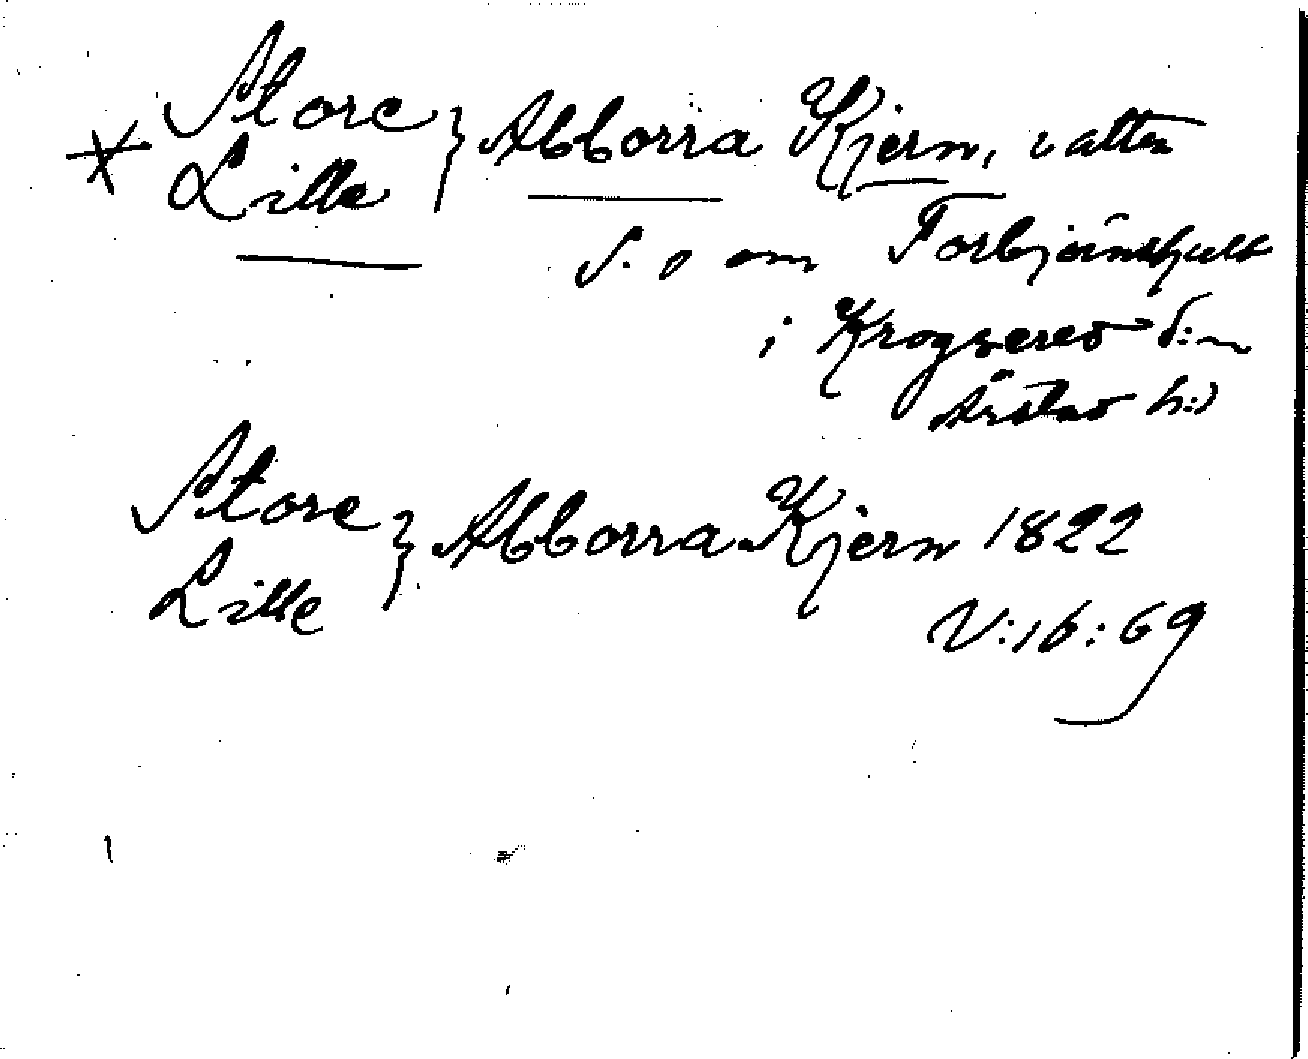 * Store } Abborra Kjern, vatten
Lille
S. o om Torbjörnshult
i Krogsered s:n
Årstad h:d
Store } Abborra Kjern 1822
Lille
V:16:69